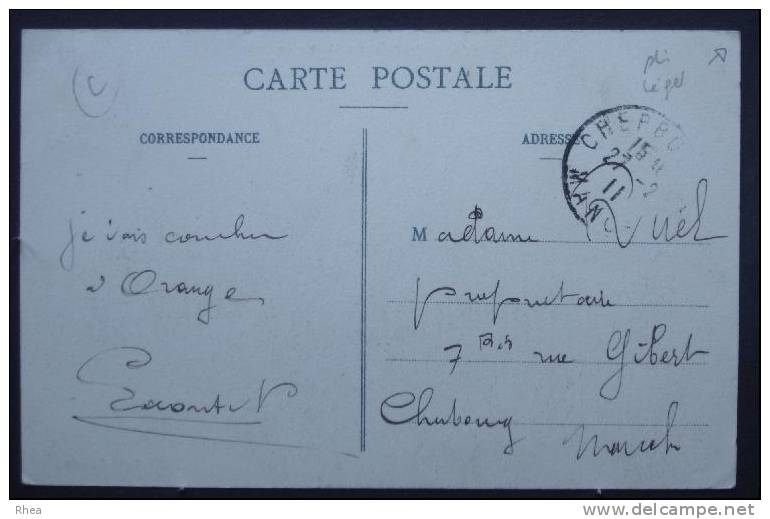 pli
léger
CARTE POSTALE
CORRESPONDANCE
ADRESSE
CHERBO
15
27-2
11
MANC
je vais coucher
à Orange
Madame Viel
propriétaire
7 Bis rue Gibert
Cherbourg
Manche
Rhea
www.delcampe.net